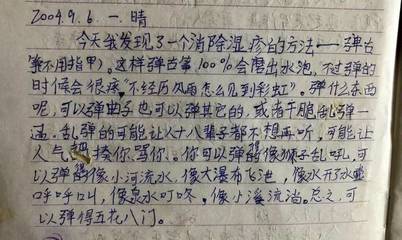 2004.9.6. 一. 晴
今天我发现了一个消除湿疹的方法——弹古
筝不用指甲)。这样弹古筝100%会磨出水泡。不过弹的
时候会很疼"不经历风雨怎么见到彩虹"。弹什么东西
呢,可以弹曲子也可以弹其它的,或者干脆乱弹一
通。乱弹的可能让人十八辈子都不想再听,可能让
人气得揍你、骂你、。你可以弹得像狮子乱吼,可
以弹得像小河流水,像大瀑布飞泄,像水开了水壶
呼呼叫,像泉水叮咚。像小溪流淌。总之,可
以弹得五花八门。